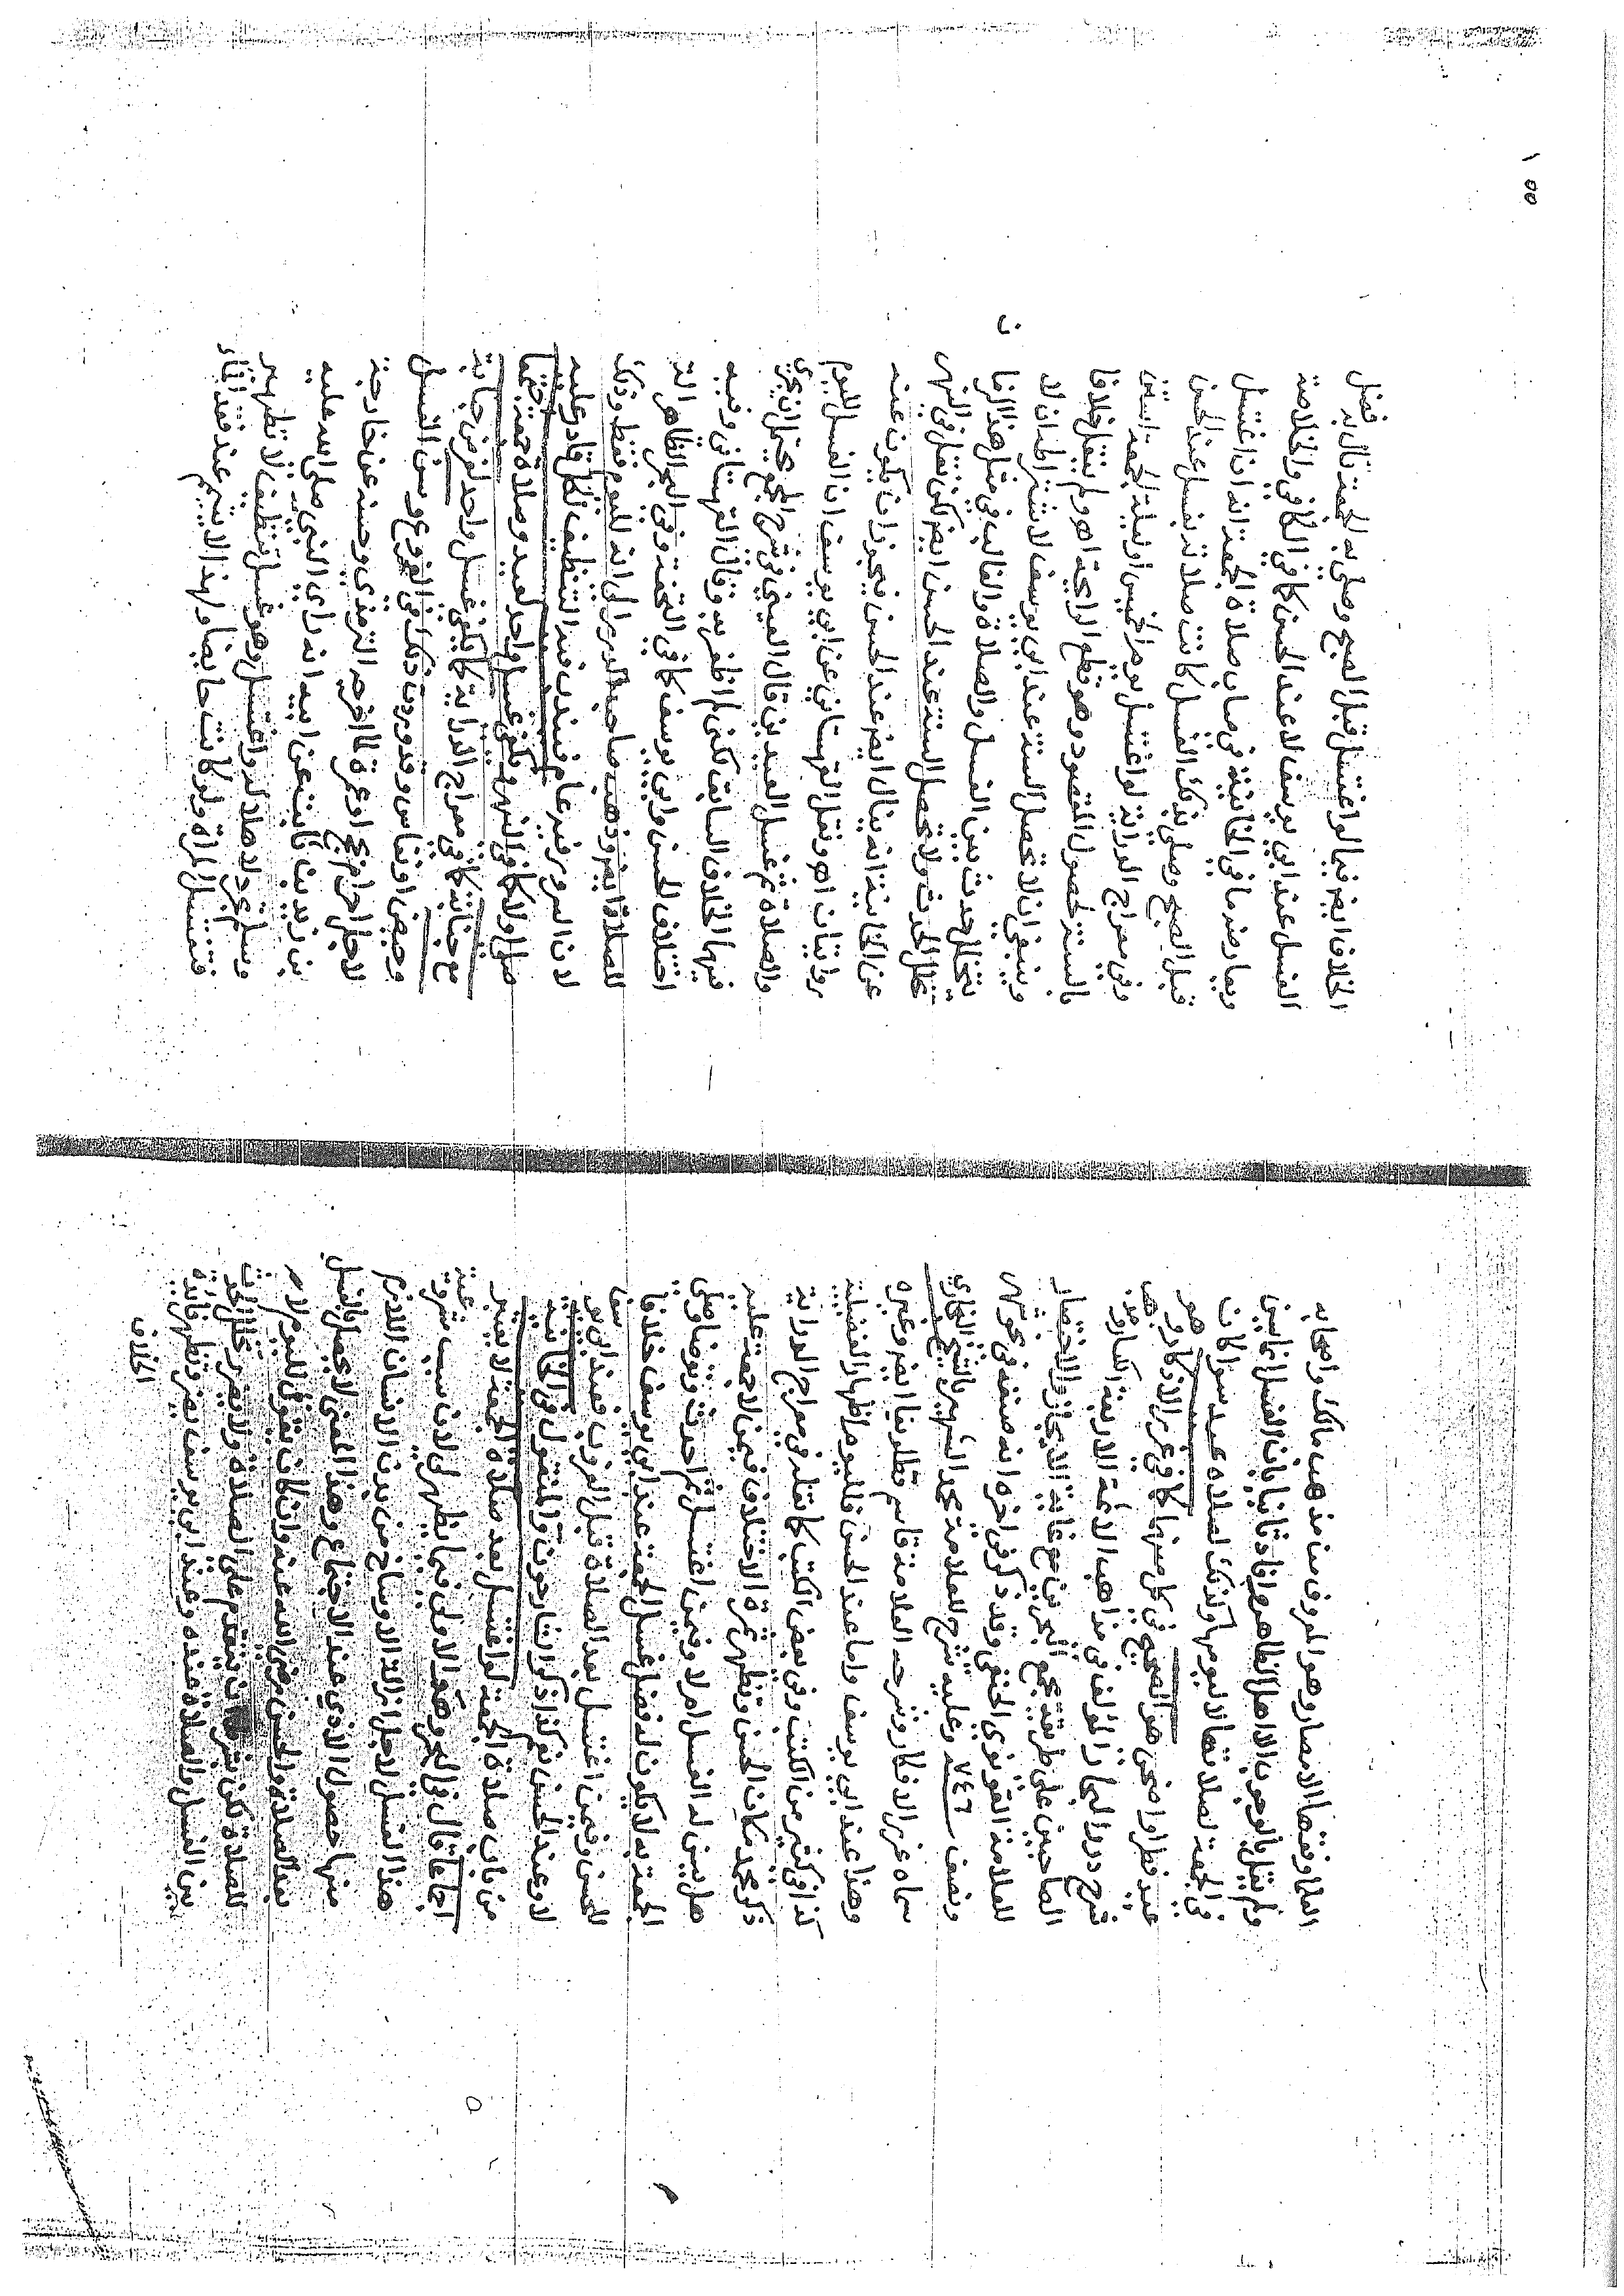 العلما وفقها الامصار وهو المعروف من مذهب مالك واصحابه
ولم يقل بالوجوب الا اهل الظاهر وافاد ثانيا بان الغسل للعاشين
في الجمعة لصلاتها لا ليومها وكذلك لصلاة عيد سوا كان
عيد فطر او اضحى هو الصحيح في كل منهما كما في غرر الاذكار وهو
شرح درر البحار المؤلف في مذاهب الائمة الاربعة الكبار وهذين
الصاحبين على طريقة مجمع البحرين مع غاية الايجاز والاختصار
للعلامة القونوي الحنفي وقد ذكر في اخره انه صنفه في نحو شهر
ونصف ٧٤٦ وعليه شرح للعلامة محمد الشهير بالشيخ البخاري
سماه غرر الاذكار وشرحه العلامة قاسم قطلوبغا ايضا وغيره
وهذا عند ابي يوسف واما عند الحسن فلليوم اظهارا لفضيلته
كذا في كثير من الكتب وفي بعض الكتب كما نقله في معراج الدراية
ذكر محمد مكان الحسن وتظهر ثمرة الاختلاف فيمن لا جمعة عليه
هل يسن له الغسل ام لا وفيمن اغتسل ثم احدث وتوضا وصلى
الجمعة به لا يكون له فضل غسل الجمعة عند ابي يوسف خلافا
للحسن وفيمن اغتسل بعد الصلاة قبل الغروب فعند ابي يوسف
لا وعند الحسن نعم كذا ذكر الشارحون والمنقول في الخانية
من باب صلاة الجمعة لو اغتسل بعد صلاة الجمعة لا يعتبر
اجماعا قال في البحر وهو الاولى فيما يظهر لي لان سبب مشروعية
هذا الغسل لاجل ازالة الاوساخ من بدن الانسان اللازم
منها حصول الاذى عند الاجتماع وهذا المعنى لا يحصل بالغسل
بعد الصلاة والحسن رضي الله عنه وان كان يقول لليوم لا
للصلاة لكن بشرط ان يتقدم على الصلاة ولا يضر تخلل الحدث
بين الغسل والصلاة عنده وعند ابي يوسف يضر وتظهر فائدة
الخلاف
١٥٥
الخلاف ايضا فيما لو اغتسل قبل الصبح وصلى به الجمعة نال به فضل
الغسل عند ابي يوسف لا عند الحسن كما في الكافي والخلاصة
ويعارضه ما في الخانية في باب صلاة الجمعة انه ان اغتسل
قبل الصبح وصلى بذلك الغسل كانت صلاة بغسل عند الحسن
وفي معراج الدراية لو اغتسل يوم الخميس او ليلة الجمعة استن
بالسنة لحصول المقصود وهو قطع الرائحة اهـ ولم ينقل خلافا
وينبغي ان لا تحصل السنة عند ابي يوسف لاشتراطه ان لا
يتخلل حدث بين الغسل والصلاة والغالب في مثل هذا الزمان
تخلل الحدث ولا تحصل السنة عند الحسن ايضا لكن نقل في النهر
عن الخانية انه ينال ايضا عند الحسن فيجوز ان يكون عنه
روايتان اهـ ونقل القهستاني عن ابي يوسف ان الغسل لليوم
والصلاة ثم غسل العيدين قال العيني في شرح المجمع يحتمل ان يجري
فيهما الخلاف السابق لكني لم اظفر به وقال القهستاني وفيه
اختلاف الحسن وابي يوسف كما في التحفة وفي البحر الظاهر انه
للصلاة ايضا وذهب صاحب الدرر الى انه لليوم فقط وذلك
لان السرور فيه عام فيندب فيه التنظيف لكل قادر عليه
صلى ام لا كما في النهر ويكفي غسل واحد لعيد وصلاة جمعة اجتمعا
مع جنابة كما في معراج الدراية كما يكفي غسل واحد لفرضي جنابة
وحيض او نفاس وقد مرت ذلك في الفروع وسن الغسل
لاجل احرام بحج او عمرة لما اخرجه الترمذي وحسنه عن خارجة
بن زيد بن ثابت عن ابيه انه راى النبي صلى الله عليه
وسلم تجرد لاهلاله واغتسل وهو غسل تنظيف لا تطهير
فتغتسل المراة ولو كانت حايضا ولهذا لا يتيمم عند فقد الماء